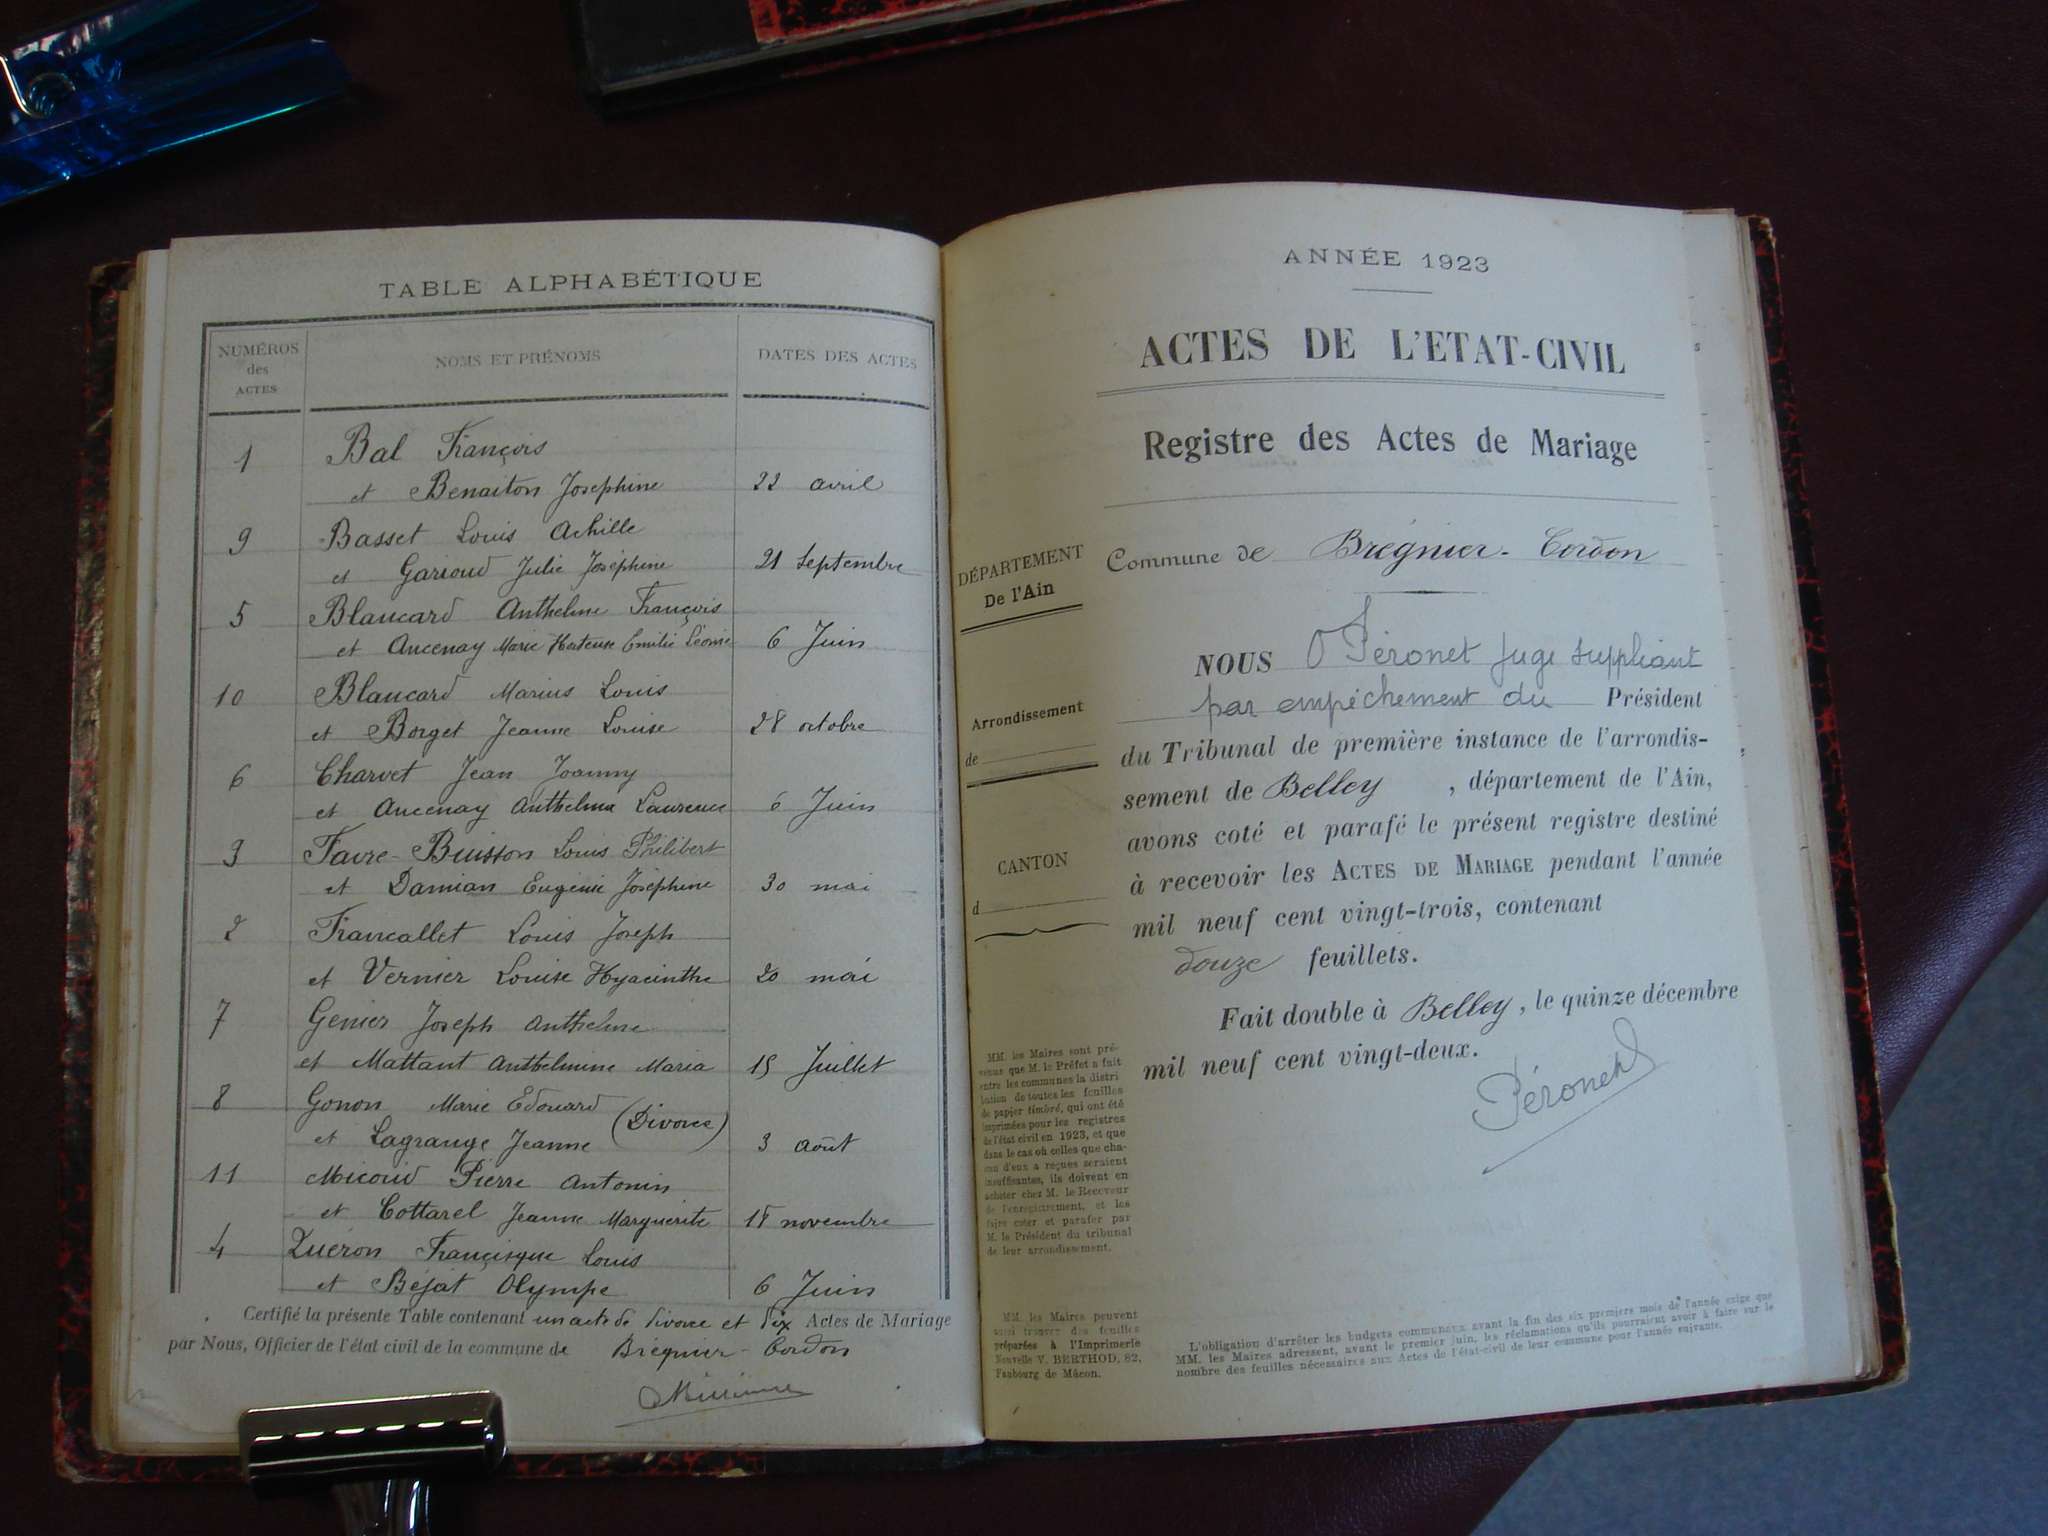 TABLE ALPHABÉTIQUE
NUMÉROS des ACTES NOMS ET PRÉNOMS DATES DES ACTES
1 Bal François
et Benaiton Josephine 22 avril
9 Basset Louis Achille
et Garioud Julie Joséphine 21 Septembre
5 Blancard Anthelme François
et Ancenay Marie Hortense Emilie Léonie 6 Juin
10 Blancard Marius Louis
et Borget Jeanne Louise 28 octobre
6 Charvet Jean Joanny
et Ancenay Anthelma Laurence 6 Juin
3 Favre-Buisson Louis Philibert
et Damian Eugénie Joséphine 30 mai
2 Francallet Louis Joseph
et Vernier Louise Hyacinthe 20 mai
7 Genier Joseph Anthelme
et Mattant Anthelmine Maria 15 Juillet
8 Gonon Marie Edouard
et Lagrange Jeanne (Divorce) 3 Août
11 Micoud Pierre Antonin
et Cottarel Jeanne Marguerite novembre
4 Quéron Francisque Louis
et Béjat Olympe 6 Juin
Certifié la présente Table contenant un acte de divorce et dix Actes de Mariage
par Nous, Officier de l'état civil de la commune de Brégnier-Cordon
ANNÉE 1923
ACTES DE L'ETAT-CIVIL
Registre des Actes de Mariage
DÉPARTEMENT
De l'Ain
Commune de Brégnier-Cordon
Arrondissement
de
CANTON
d
NOUS Péronet Juge Suppléant
par empêchement du Président
du Tribunal de première instance de l'arrondis-
sement de Belley, département de l'Ain,
avons coté et parafé le présent registre destiné
à recevoir les ACTES DE MARIAGE pendant l'année
mil neuf cent vingt-trois, contenant
douze feuillets.
Fait double à Belley, le quinze décembre
mil neuf cent vingt-deux.
Péronet
MM. les Maires sont pré-
venus que M. le Préfet a fait
entre les communes la distri
bution de toutes les feuilles
de papier timbré, qui ont été
imprimées pour les registres
de l'état civil en 1923, et que
dans le cas où celles que cha-
cun d'eux a reçues seraient
insuffisantes, ils doivent en
acheter chez M. le Receveur
de l'enregistrement, et les
faire coter et parafer par
M. le Président du tribunal
de leur arrondissement.
MM. les Maires peuvent
aussi trouver des feuilles
préparées à l'Imprimerie
Nouvelle V. BERTHOD, 82,
Faubourg de Mâcon.
L'obligation d'arrêter les budgets communaux avant la fin des six premiers mois de l'année exige que
MM. les Maires adressent, avant le premier juin, les réclamations qu'ils pourraient avoir à faire sur le
nombre des feuilles nécessaires aux Actes de l'état-civil de leur commune pour l'année suivante.